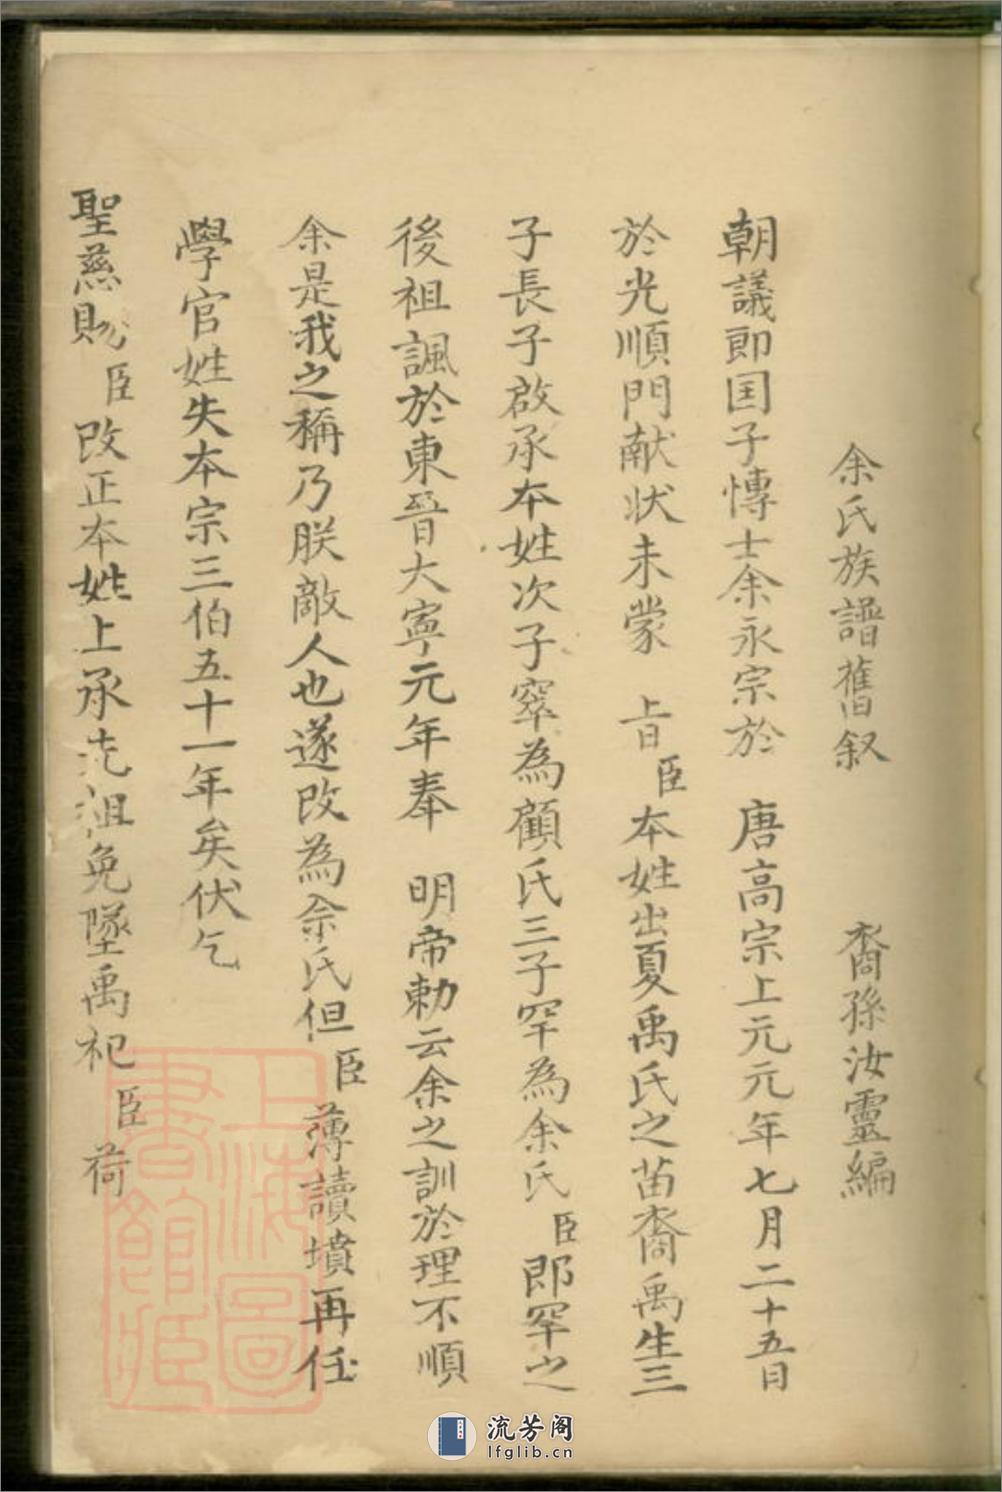 余氏族譜舊叙　裔孫汝靈編
朝議郎囯子愽士余永宗於　唐高宗上元元年七月二十五日
於光順門献状未蒙　上旨臣本姓出夏禹氏之苗裔禹生三
子長子啟承本姓次子窂為顧氏三子罕為余氏臣郎罕之
後祖諷於東晉大寧元年奉　明帝勅云余之訓於理不順
余是我之稱乃朕敵人也遂改為佘氏但臣薄讀墳再任
學官姓失本宗三伯五十一年矣伏乞
聖慈賜臣改正本姓上承先祖免墜禹祀臣荷
上海圖書館藏
流芳阁
lfglib.cn